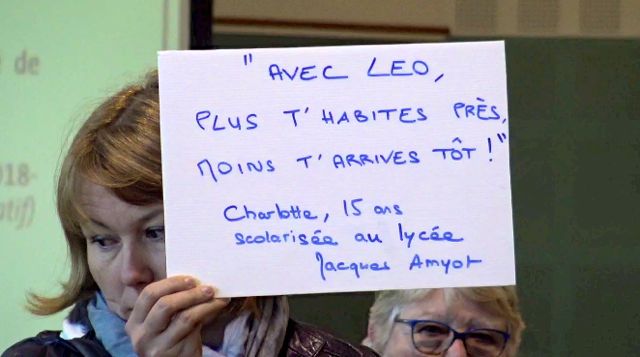 é de
2018-
atif)
" AVEC LEO,
PLUS T'HABITES PRÈS,
MOINS T'ARRIVES TÔT ! "
Charlotte, 15 ans
scolarisée au lycée
Jacques Amyot